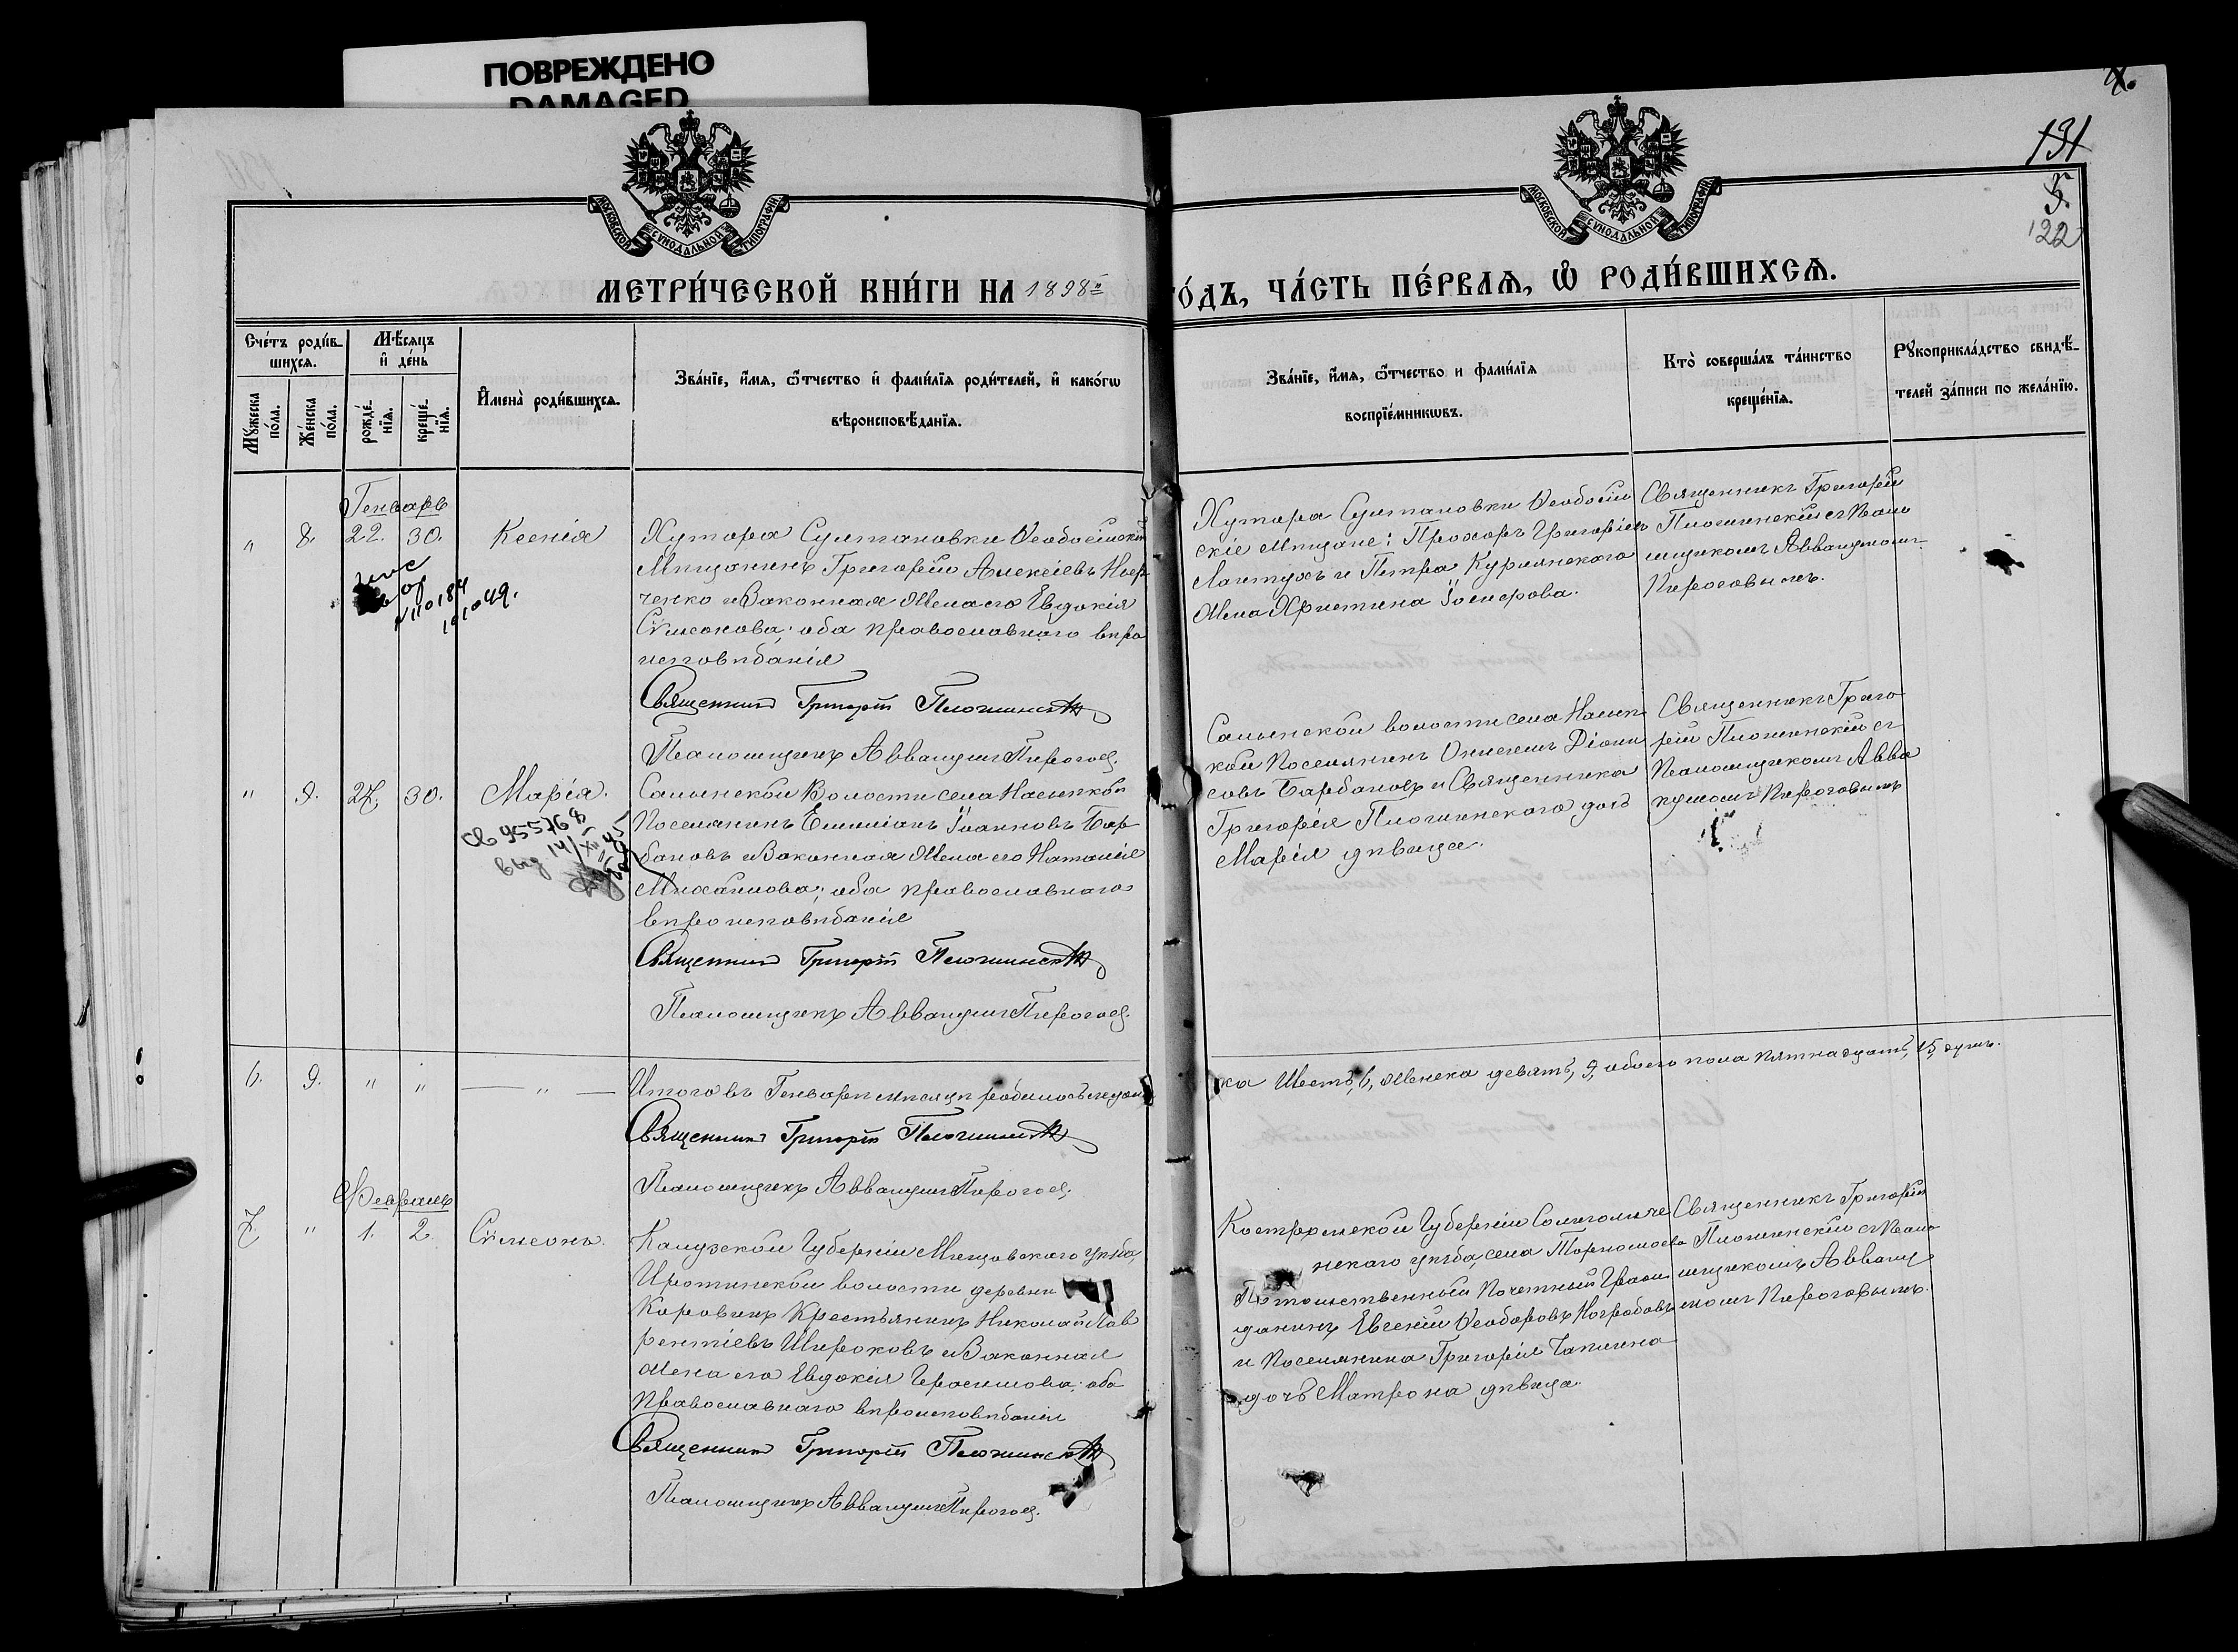 ПОВРЕЖДЕНО
DAMAGED
МОСКОВСКОЙ СУНОДАЛЬНОЙ ТИПОГРАФІИ
МОСКОВСКОЙ СУНОДАЛЬНОЙ ТИПОГРАФІИ
131
5.
122
МЕТРИ́ЧЕСКОЙ КНИ́ГИ НА 1898й
ГО́ДЪ, ЧА́СТЬ ПЕ́РВАЯ, Ѡ РОДИ́ВШИХСЯ.
Сче́тъ роди́в-
шихся.
Мꙋ́жеска по́ла.
Же́нска по́ла.
Мѣ́сяцъ
и҆ де́нь
рожде́-нїя.
креще́-нїя.
И҆мена̀ роди́вшихся.
Зва́нїе, и҆́мя, ѻ҆́тчество и҆ фами́лїя роди́телей, и҆ како́гѡ
вѣроисповѣ́данїя.
Зва́нїе, и҆́мя, ѻ҆́тчество и фами́лїя
воспрїе́мникѡвъ.
Кто̀ соверша́лъ та́инство
креще́нїя.
Рꙋкоприкла́дство свидѣ́-
телей за́писи по жела́нїю.
Генварь
" 8. 22. 30. Ксенія
Хутора Султановки Ѳеодосійскій
Мѣщанинъ Григорій Алексіевъ
ченко и Законная Жена его Евдокія
Сѵмеонова; оба православнаго вѣро
исповѣданія
Священникъ Григорій Плогинскій
Псаломщикъ Аввакумъ Пироговъ.
Хутора Султановки Ѳеодосій
скіе мѣщане: Прохоръ Григоріевъ
и Петра Курлянскаго
Жена Христина Іосифова.
Священникъ Григорій
Плогинскій съ Псало
мщикомъ Аввакумомъ
Пироговымъ.
" 9. 27. 30. Марія.
св 955768
выд 14/XII 45
Салынской Волости села Насыпкой
Поселянинъ Емиліанъ Іоанновъ Бар
бановъ и Законная Жена его Наталія
Михайлова; оба православнаго
вѣроисповѣданія
Священникъ Григорій Плогинскій
Псаломщикъ Аввакумъ Пироговъ.
Салынской волости села Насып
кой Поселянинъ Онисимъ Діони
совъ Барбановъ и Священника
Григорія Плогинскаго дочь
Марія дѣвица.
Священникъ Григо
рій Плогинскій съ
Псаломщикомъ Авва
кумомъ Пироговымъ
6. 9. " " — " — Итого въ Генварѣ мѣсяцѣ родилось
ка Шесть, 6, Женска девять, 9, обоего пола пятнадцать, 15, душъ.
Священникъ Григорій Плогинскій
Псаломщикъ Аввакумъ Пироговъ.
Февраль
7. " 1. 2. Сѵмеонъ.
Калужской Губерніи Мещовскаго уѣзда,
волости деревни
Коровинъ Крестьянинъ Николай Лав
рентіевъ Широковъ и Законная
Жена его Евдокія Герасимова; оба
Православнаго вѣроисповѣданія
Священникъ Григорій Плогинскій
Псаломщикъ Аввакумъ Пироговъ.
Костромской Губерніи Солигаличе
нскаго уѣзда, села
Потомственный Почетный Граж
данинъ Евгеній Ѳеодоровъ
и Поселянина Григорія
дочь Матрона дѣвица.
Священникъ Григорій
Плогинскій съ Псало
мщикомъ Авваку
момъ Пироговымъ.